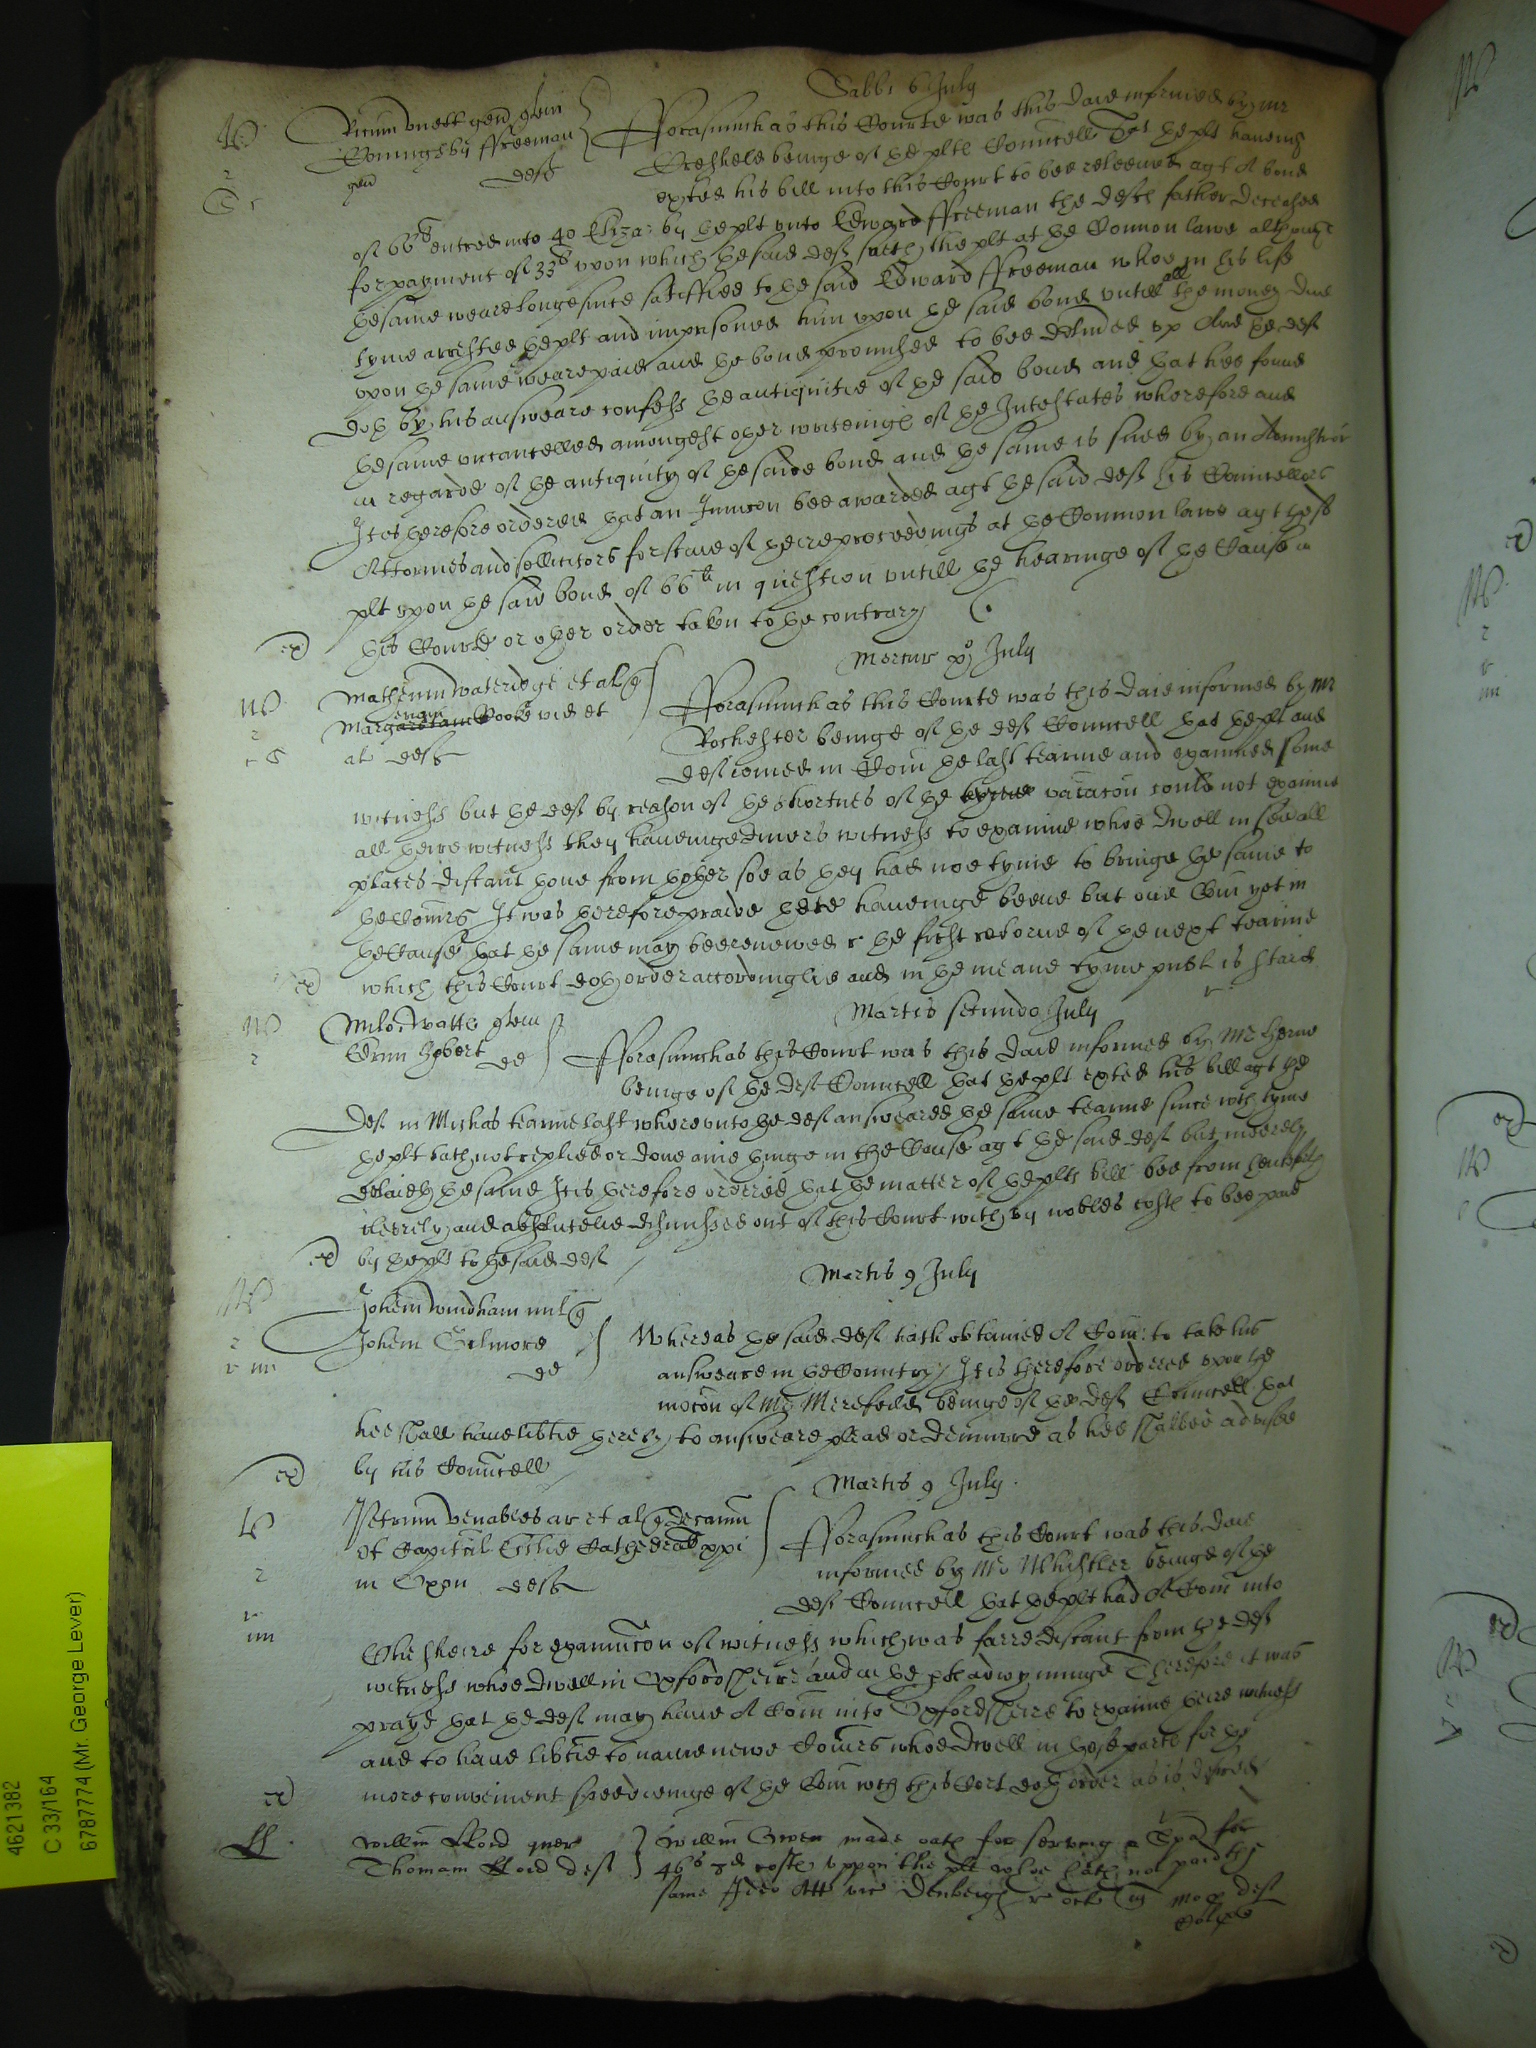 Sabbi 6 July
Ricum Knett gen quer
Coningesby ffreeman
gen deft
Forasmuch as this Courte was this daie informed by Mr
beinge of the plts Councell That the plt haveing
exhited his bill into this Court to bee releeved agt A bond
of 66li entred into 40 Eliza: by the plt unto Edward ffreeman the defts father deceased
for payment of 33li upon which the said deft sueth the plt at the Common lawe although
the same weare longe since satisfied to the said Edward ffreeman whoe in his life
tyme arrested the plt and imprisoned him upon the said bond untill all the money due
upon the same weare paid and the bond promised to bee delivred up And the deft
doth by his answeare confess the antiquitie of the said bond and that hee found
the same uncancelled amongest other writeings of the Intestates wherefore and
in regarde of the antiquity of the saide bond and the same is sued by an Admistrator
It is therefore ordered that an Iniunccon bee awarded agt the said deft his Councellors
Attornies and sollicitors for staie of theire proceedings at the Common lawe agt the sd
plt upon the said bond of 66li in question untill the hearinge of the Cause in
this Courte or other order taken to the contrary
Mercur xo July
Matheum Wateridge et al quer
Margaretam Cooke vid et
al deft
Forasmuch as this Courte was this daie informed by Mr
Rochester beinge of the deft Councell that the plt and
deft ioined in Com the last tearme and examined some
witness but the deft by reason of the shortnes of the tyme vacacon could not examine
all theire witness they haveinge divers witness to examine whoe dwell in sevall
places distant thone from thother soe as they had noe tyme to bringe the same to
the Comrs It was therefore praied there haveinge beene but one Com yet in
the Cause that the same may bee renewed r the first retorne of the next tearme
which this Court doth order accordinglie and in the meane tyme publ is staid
Martis secundo July
Milo Watts quer
Edrum Hobert
de
Forasmuch as this Court was this daie informed by Mr Herne
beinge of the deft Councell that the plt exhited his bill agt the
deft in Michas tearme last whereunto the deft answeared the same tearme since wch tyme
the plt hath not replied or done anie thinge in the Cause agt the said deft but meerely
delaieth the same It is therefore ordered that the matter of the plts bill bee from henceforth
cleerely and absolutelie dismissed out of this Court with xx nobles costs to bee paid
by the plt to the said deft
Martis 9 July
Johem Windham mil quer
Johem Gilmore
de
Whereas the said deft hath obtained A Com: to take his
answeare in the Countrey It is therefore ordered upon the
mocon of Mr Merefeild beinge of the deft Councell that
hee shall have libtie thereby to answeare plead or demurre as hee shalbee advised
by his Councell
Martis 9 July
Petrum Venables ar et al quer Decanum
et Capitul Ecclie Cathedralis xpi
in Oxon deft
Forasmuch as this Court was this daie
informed by Mr Whistler beinge of the
deft Councell that the plt had A Com into
Chesheire for examincon of witness which was farre distant from the deft
witness whoe dwell in Oxfordsheire and in the pts adioyninge Therefore it was
prayed that the deft may have A Com into Oxfordsheire to examine theire witness
and to have libtie to name newe Comrs whoe dwell in those parts for the
more convenient speedieinge of the Com wch this Cort doth order as is desired
Willm Lloid quer
Thomam Lloid deft
Willm Owen made oath for serving a spa for
46s 8d costs uppon the plt whoe hath not paid the
same Ideo Att vic Denbeigh r oct
deft
4621382
C 33/164
6787774 (Mr. George Lever)